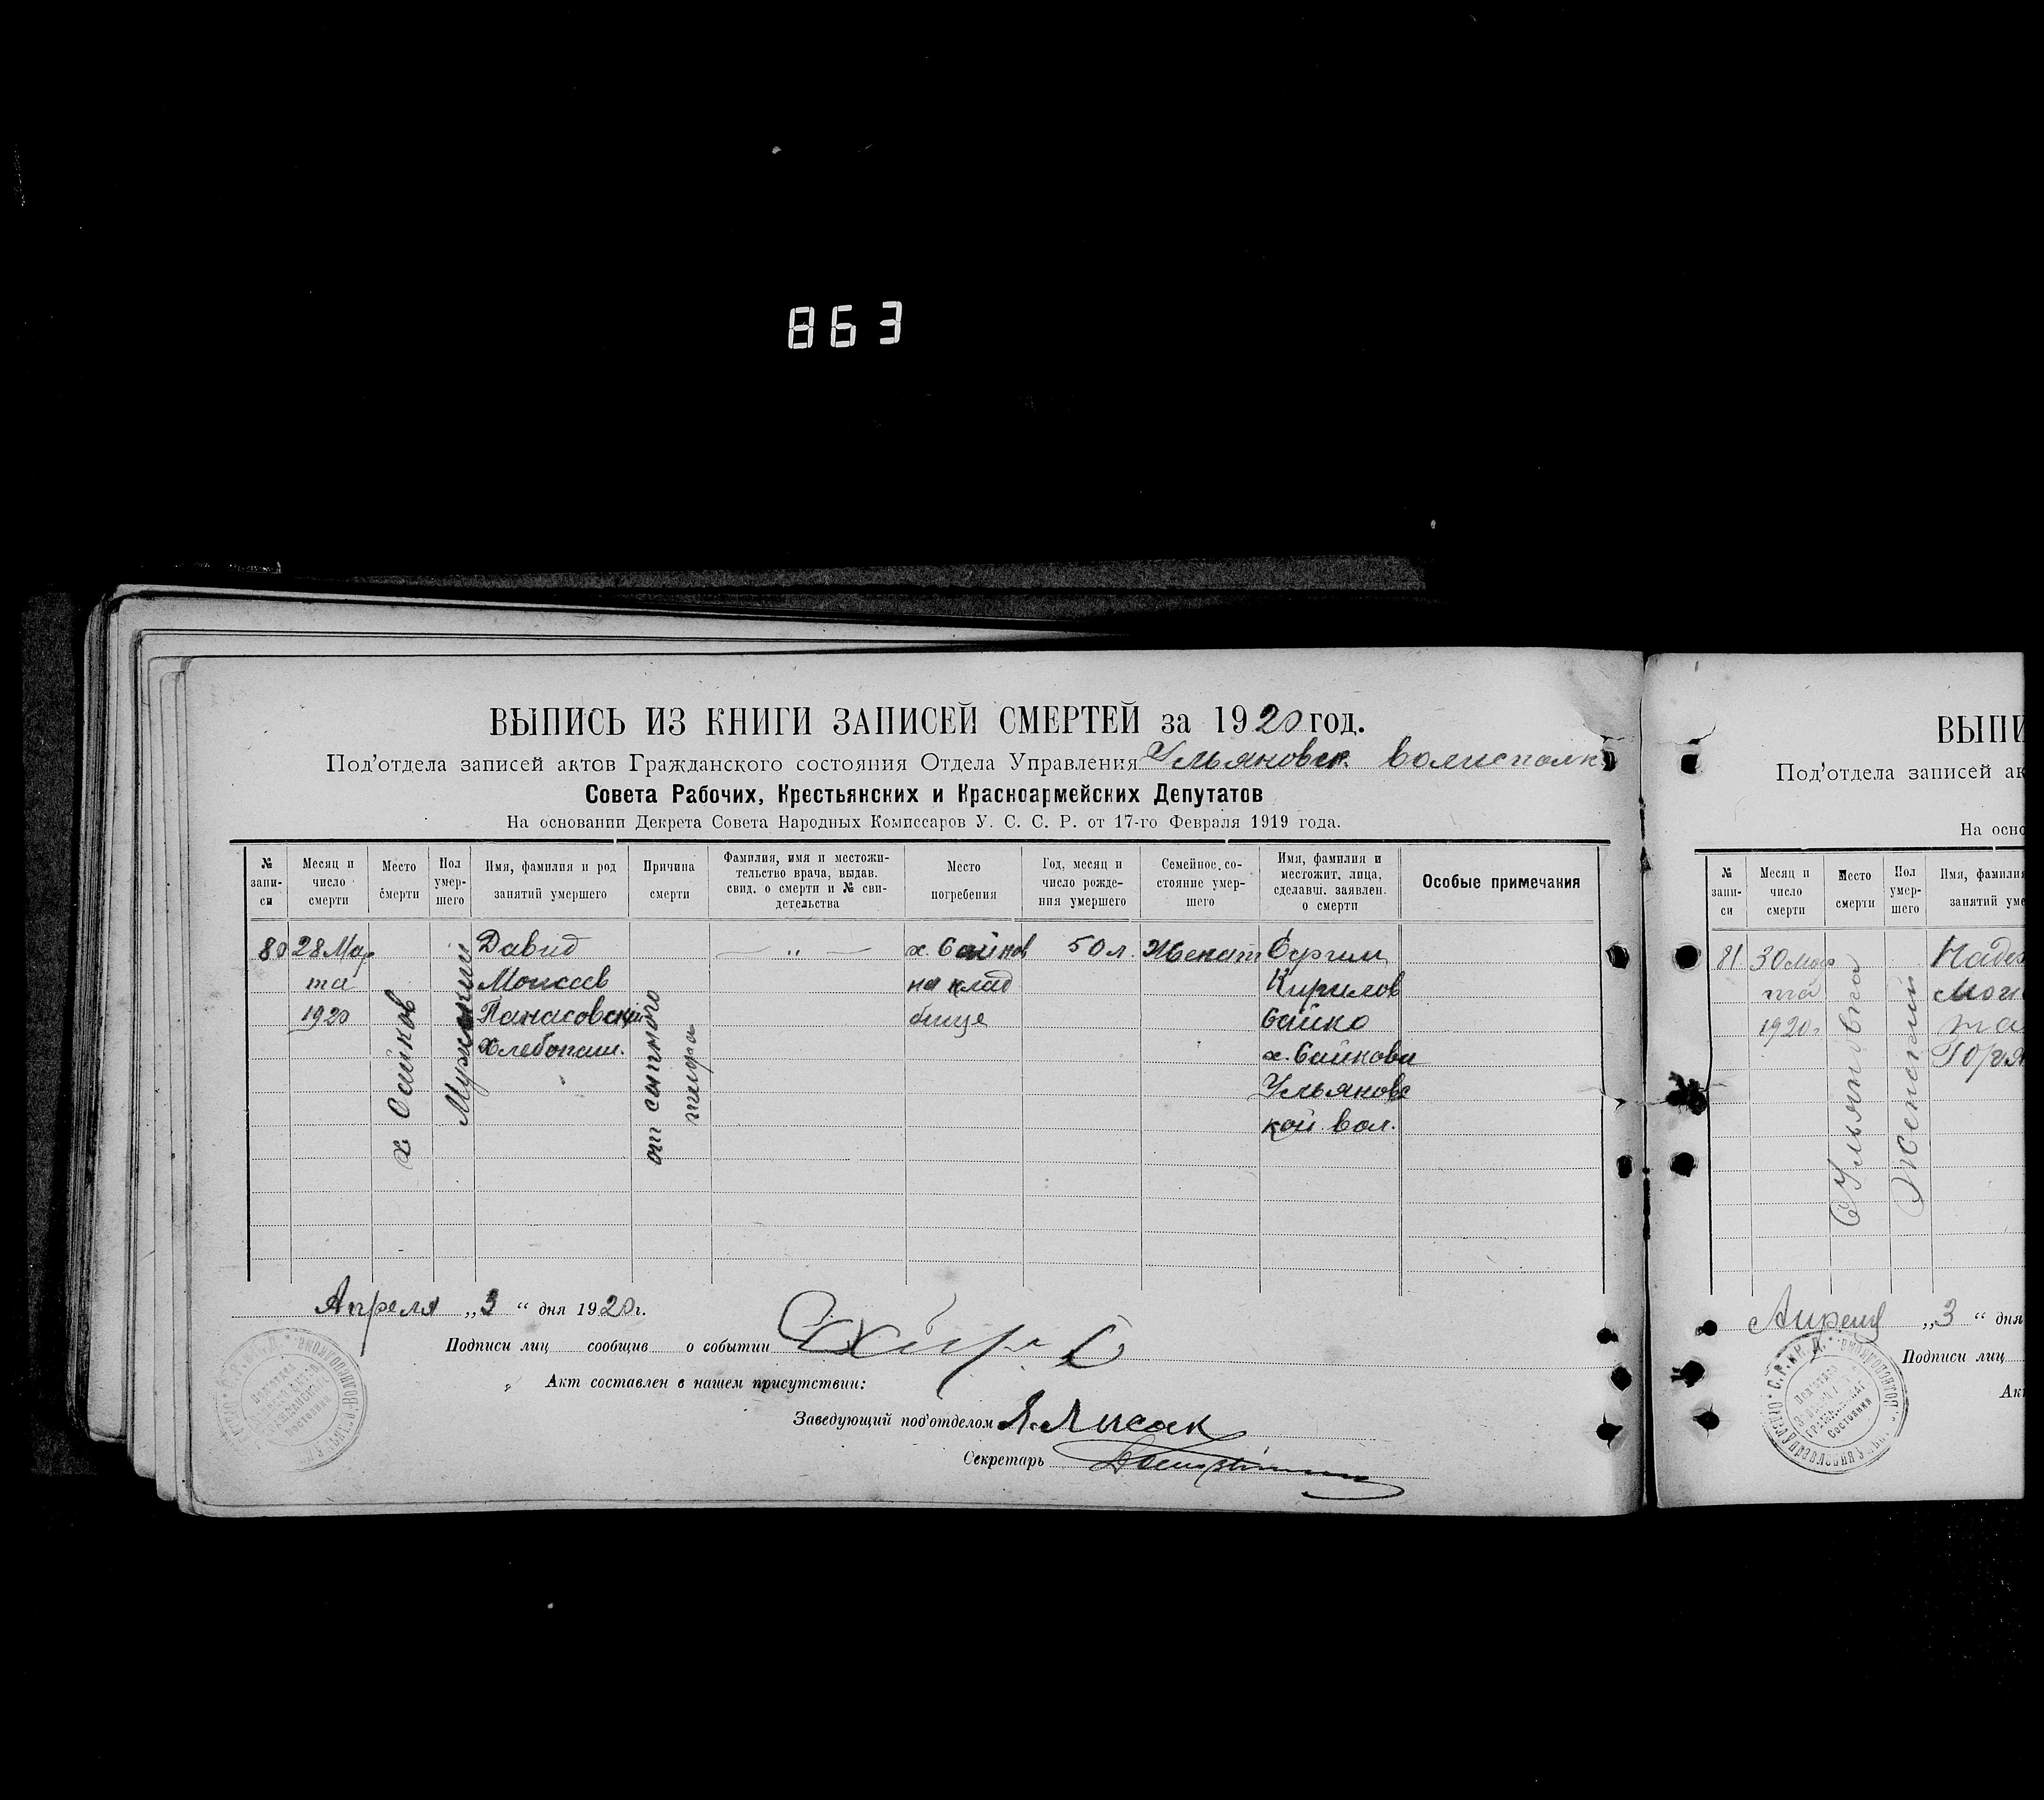 863
ВЫПИСЬ ИЗ КНИГИ ЗАПИСЕЙ СМЕРТЕЙ за 1920 год.
Под'отдела записей актов Гражданского состояния Отдела Управления Ульяновск. волисполк.
Совета Рабочих, Крестьянских и Красноармейских Депутатов
На основании Декрета Совета Народных Комиссаров У. С. С. Р. от 17-го Февраля 1919 года.
№ запи-
си
Месяц и
число
смерти
Место
смерти
Пол
умер-
шего
Имя, фамилия и род
занятий умершего
Причина
смерти
Фамилия, имя и местожи-
тельство врача, выдав.
свид. о смерти и № сви-
детельства
Место
погребения
Год, месяц и
число рожде-
ния умершего
Семейное со-
стояние умер-
шего
Имя, фамилия и
местожит. лица,
сделавш. заявлен.
о смерти
Особые примечания
80
28 Мар
та
1920
х Саików
Мужский
Давид
Моисеев
Панасовский
Хлебопаш.
от сыпного
тифа
— " —
на клад
бище
50 л.
Женат
Кирилов
Ульяновс
кой вол.
Апреля „3“ дня 1920 г.
Подписи лиц сообщив о событии
Акт составлен в нашем присутствии:
Заведующий под'отделом Я. Лысак
Секретарь
ВЫПИ
Под'отдела записей ак
На осно
№
запи-
си
Месяц и
число
смерти
Место
смерти
Пол
умер-
шего
Имя, фамилия
занятий уме
81
30 мар
та
1920 г
с Ульяновка
Женский
Надеж
Апреля „3“ дня
Подписи лиц
Ак